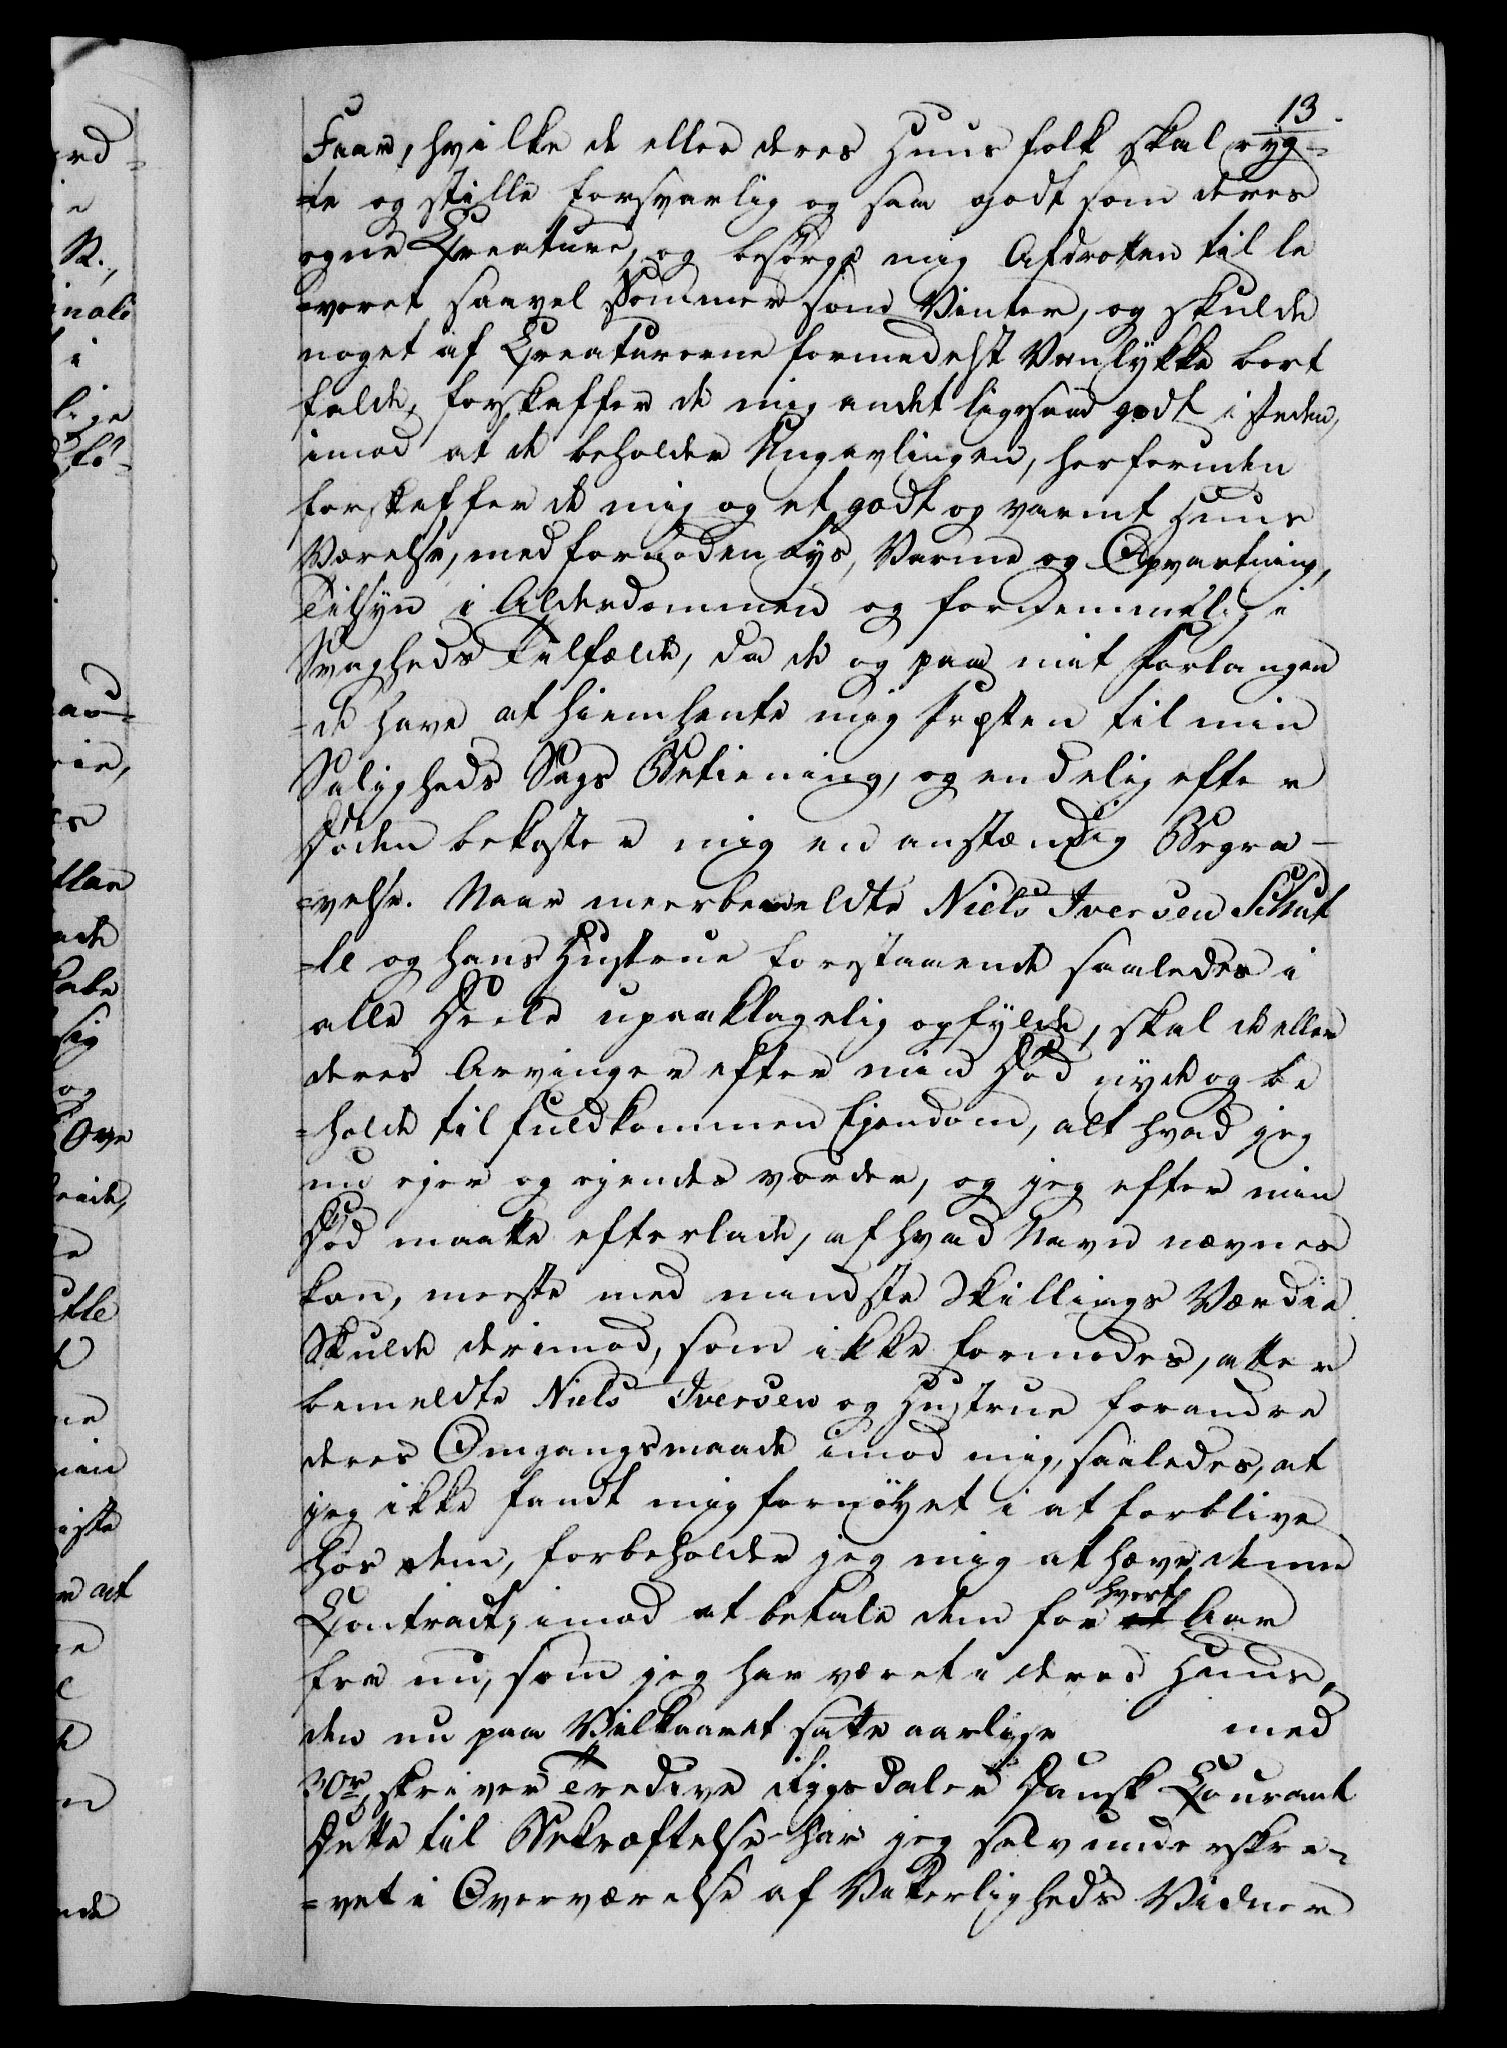 13.
Faar, hvilke de eller deres Huus folk skal ryg-
-te og stille forsvarlig og saa godt som deres
egne Creature, og besørge mig Afdrotten til le
-veret saavel Sommer som Vinter, og skulde
noget af Creaturerne formedelst Vanlykke bort
falde, forskaffer de mig andet ligesaa godt i steden,
imod at de beholder Ungavlingen, herforuden
forskaffer de mig og et godt og varmt Huus
Værelse, med fornøden Lys, Varme og Opvartning,
Tilsyn i Alderdommen og fornemmelig i
Svagheds Tilfælde, da de og paa mit Forlangen
-de have at hiemhente mig Præsten til min
Saligheds Sags Betiening, og endelig efter
Døden bekoster mig en anstændig Begra-
-velse. Naar meerbemeldte Niels Iversen Schut
-te og hans Hustrue forestaaende saaledes i
alle Deele upaaklagelig opfylde, skal de eller
deres Arvinger efter min Død nyde og be
-holde til fuldkommen Ejendom, alt hvad jeg
nu ejer og ejendes vorder, og jeg efter min
Død maatte efterlade, af hvad Navn nævnes
kan, meeste med mindste Skillings Værdie
Skulde derimod, som ikke formodes, atter
bemeldte Niels Iversen og Hustrue forandre
deres Omgangsmaade imod mig, saaledes, at
jeg ikke fandt mig fornøyet i at forblive
hos dem, forbeholder jeg mig at hæve denne
Contract, imod at betale dem for et hvert Aar
fra nu, som jeg har været i deres Huus,
den nu paa Vilkaaret satte aarlige med
30 rd, skriver Tredive Rigsdaler Dansk Courant
Dette til Bekræftelse har jeg selv underskre-
-vet i Overværelse af Vitterligheds Vidner